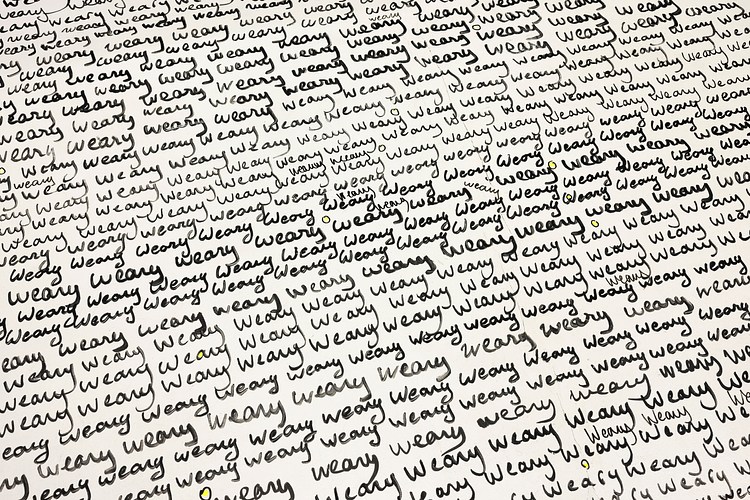 weary weary weary weary weary weary weary weary
weary weary weary weary weary weary weary weary weary
weary weary weary weary weary weary weary weary weary
weary weary weary weary weary weary weary weary weary
weary weary weary weary weary weary weary weary weary
weary weary weary weary weary weary weary weary weary
weary weary weary weary weary weary weary weary weary
weary weary weary weary weary weary weary weary weary
weary weary weary weary weary weary weary weary weary
weary weary weary weary weary weary weary weary weary
weary weary weary weary weary weary weary weary weary
weary weary weary weary weary weary weary weary weary
weary weary weary weary weary weary weary weary weary
weary weary weary weary weary weary weary weary weary
weary weary weary weary weary weary weary weary
weary weary weary weary weary weary weary weary
weary weary weary weary weary weary weary weary
weary weary weary weary weary weary weary weary
weary weary weary weary weary weary weary
weary weary weary weary weary weary
weary weary weary weary weary
weary weary weary weary